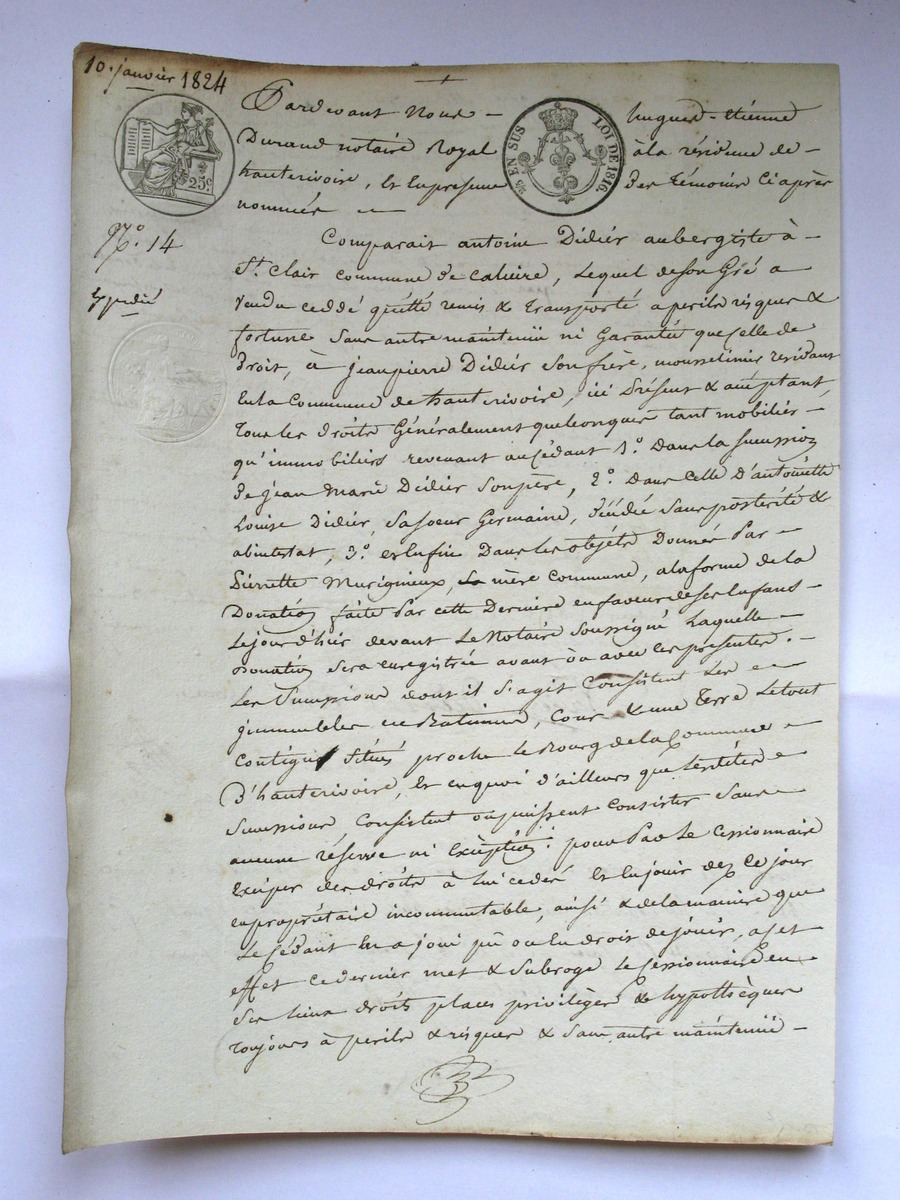 10. janvier 1824
25c
EN SUS LOI DE 1816.
N.º 14
Expédié
Pardevant Nous – hugues-étienne
Durand notaire Royal à la résidence de –
hauterivoire, Et En presence des témoins Ci après
nommés –
Comparait antoine Didier aubergiste à –
St. Clair commune de Caluire, Lequel de son Gré a
Vendu ceddé quitté remis & transporté a perils risques &
fortune Sans autre maintenüe ni Garantie que Celle de
Droit, à jean pierre Didier Son frère, mousselinier residant
En la Commune de hauterivoire, ici Présent & acceptant,
tous les droits Généralement quelconques tant mobiliers –
qu'immobiliers revenant au Cédant 1.º Dans la Succession
de jean Marie Didier Son père, 2.º Dans Celle D'antoinette
Louise Didier, Sa soeur Germaine, Décédée Sans postérité &
abintestat, 3.º et Enfin Dans les objets Donnés Par –
Pierrette Murigneux, mère Commune, a la forme de la
Donation faite Par cette Derniere en faveur de ses Enfans –
Le jour d'hier devant Le Notaire Soussigné Laquelle –
Donation Sera enregistrée avant ou avec les presentes. –
Les Successions dont il S'agit Consistent Les –
jmmeubles en Batimens, Cour & une Terre Le tout
Contigus Situés proche Le Bourg de la Commune –
D'hauterivoire, Et en quoi d'ailleurs que Lesdites –
Successions Consistent ou puissent Consister Sans –
aucune réserve ni Exception. pour Par Le Cessionnaire
Exciper des droits à lui cedés Et En jouir dez Ce jour
en propriétaire incommutable, ainsi & de la maniere que
Le Cédant En a joui pû ou Eu droit de jouir, a cet
effet ce dernier met & Subroge Le Cessionnaire en
Ses lieux droits places privilèges & hypothèques
toujours à perils & risques & sans autre maintenüe –